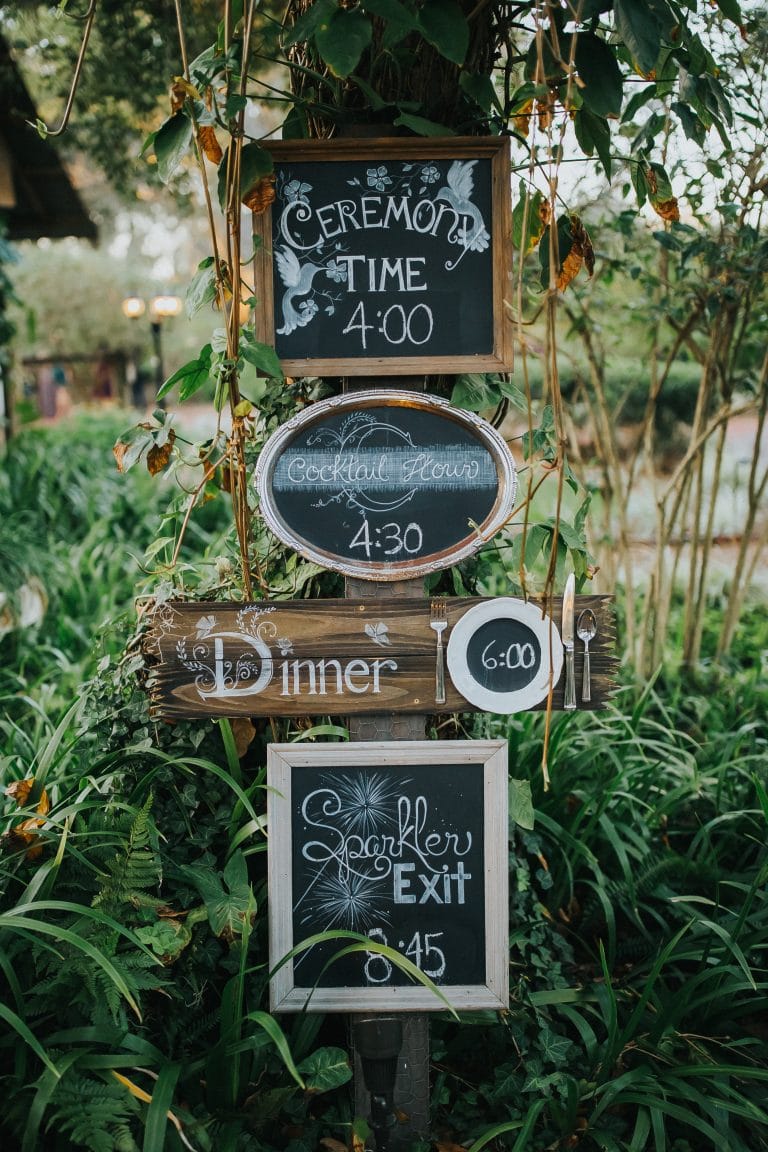 CEREMONY
TIME
4:00
Cocktail Hour
4:30
Dinner 6:00
Sparkler
EXIT
8:45